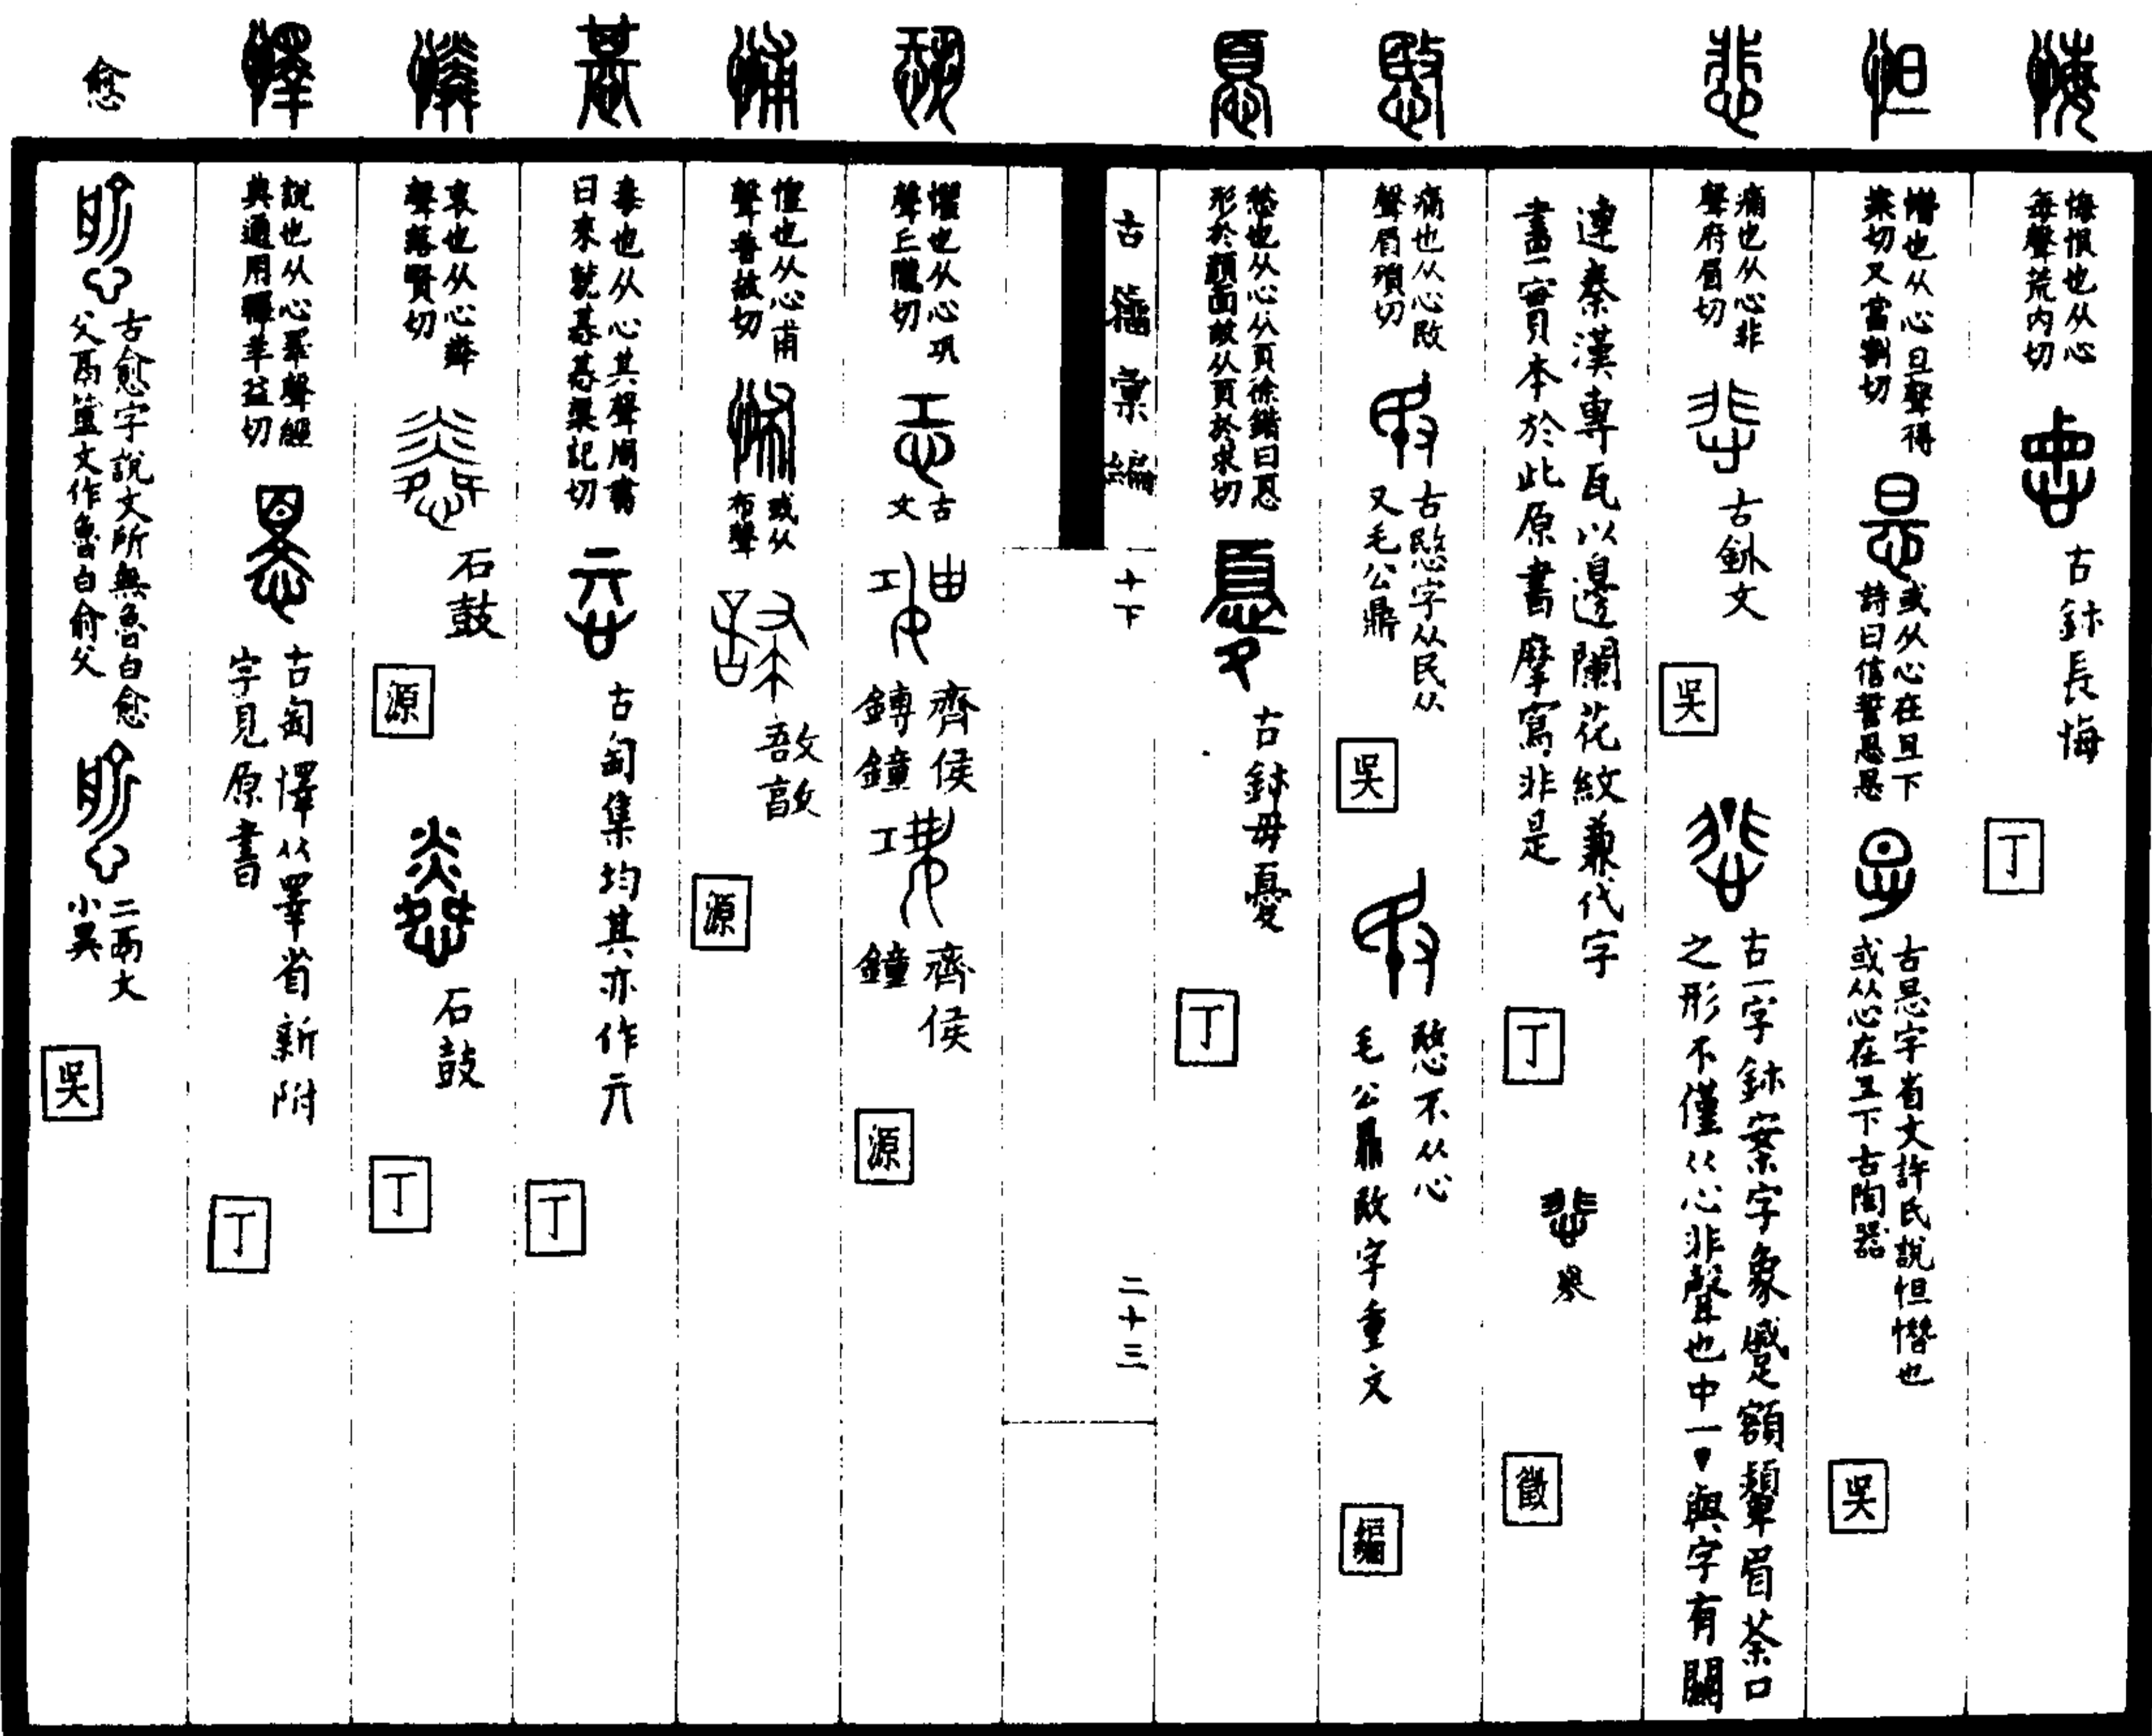 悔恨也从心
每聲荒内切
古鉢長悔
丁
憯也从心旦聲得
案切又當割切
或从心在旦下
詩曰信誓悬悬
古悬字省文許氏說怛憯也
或从心在旦下古陶器
吳
痛也从心非
聲府眉切
古鉢文
吳
古一字鉢案字象蹙額顰眉荼口
之形不僅从心非聲也中一與字有關
連秦漢專瓦以邊闌花紋兼代字
畫實本於此原書摩寫非是
丁
徵
痛也从心敃
聲眉殞切
古愍字从民从
又毛公鼎
吳
愍不从心
毛公鼎敃字重文
編
愁也从心从頁徐鍇曰𢝊
形於顏面故从頁於求切
古鉢毋憂
丁
古籀彙編
十下
二十三
懼也从心巩
聲工隴切
古
文
齊侯
鎛鐘
齊侯
鐘
源
惶也从心甫
聲普故切
或从
布聲
敔敦
源
毒也从心其聲周書
曰來就惎惎渠記切
古匋集均其亦作亓
丁
哀也从心㷠
聲落賢切
石鼓
源
石鼓
丁
說也从心睪聲經
典通用釋羊益切
古匋懌从睪省新附
字見原書
丁
愈
古愈字說文所無魯白愈
父鬲簠文作魯白俞父
二鬲文
小異
吳